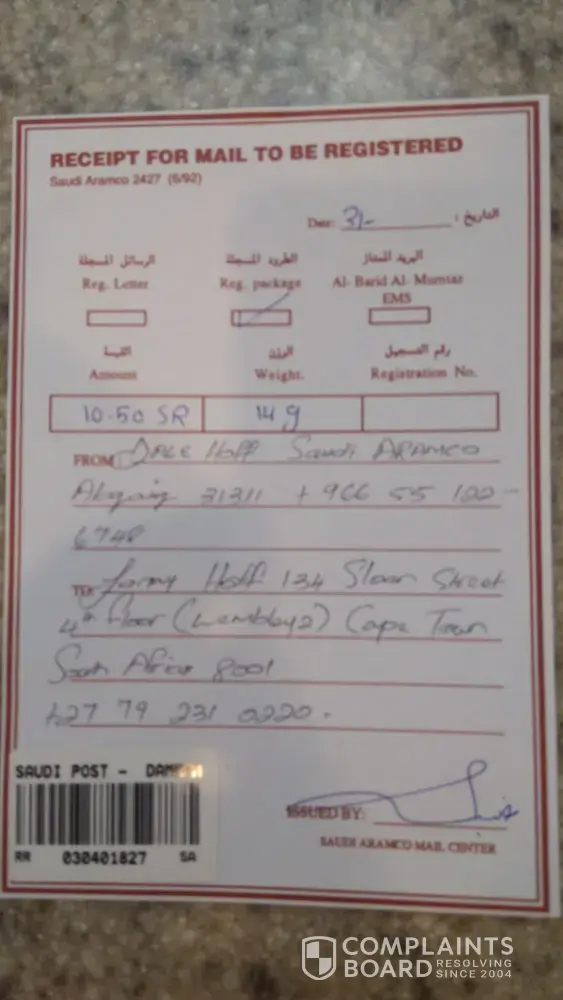 RECEIPT FOR MAIL TO BE REGISTERED
Saudi Aramco 2427 (6/92)
Date: 31- التاريخ :
الرسائل المسجلة الطرود المسجلة البريد الممتاز
Reg. Letter Reg. package Al-Barid Al-Mumtaz
EMS
القيمة الوزن رقم التسجيل
Amount Weight. Registration No.
10.50 SR 14 g
FROM DALE Hoff Saudi ARAMCO
Abqaiq 31311 + 966 55 100 -
6748
TO: Hoff 134 Street
4th floor (Wembley 2) Cape Town
South Africa 8001
+27 79 231 0220.
SAUDI POST - DAMMAM
RR 030401827 SA
ISSUED BY:
SAUDI ARAMCO MAIL CENTER
COMPLAINTS
BOARD RESOLVING
SINCE 2004